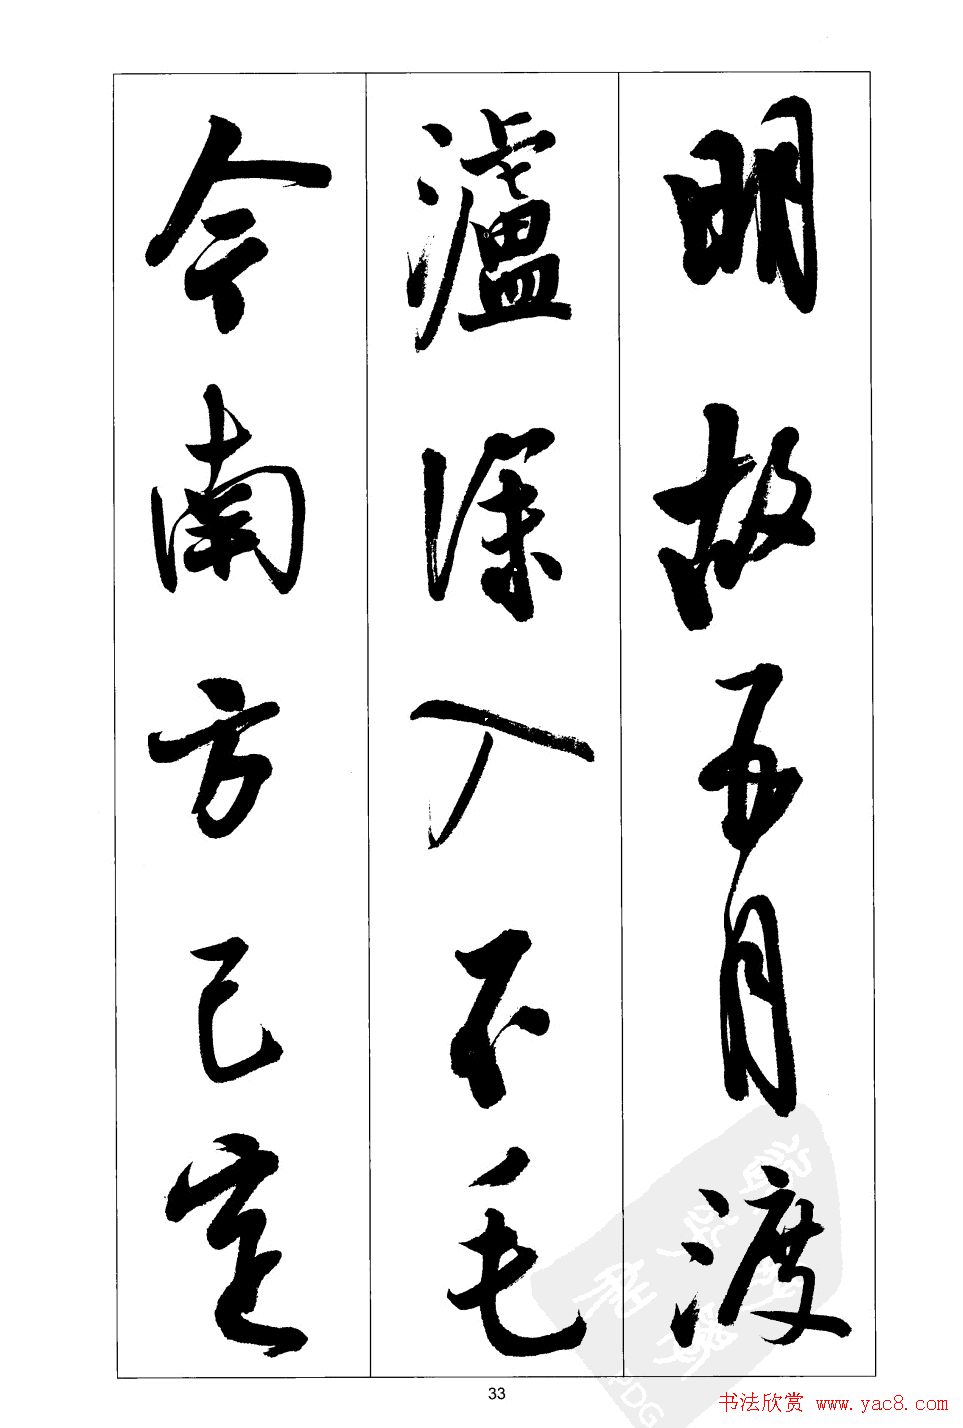 明故五月渡
瀘深入不毛
今南方已定
33
书法欣赏 www.yac8.com